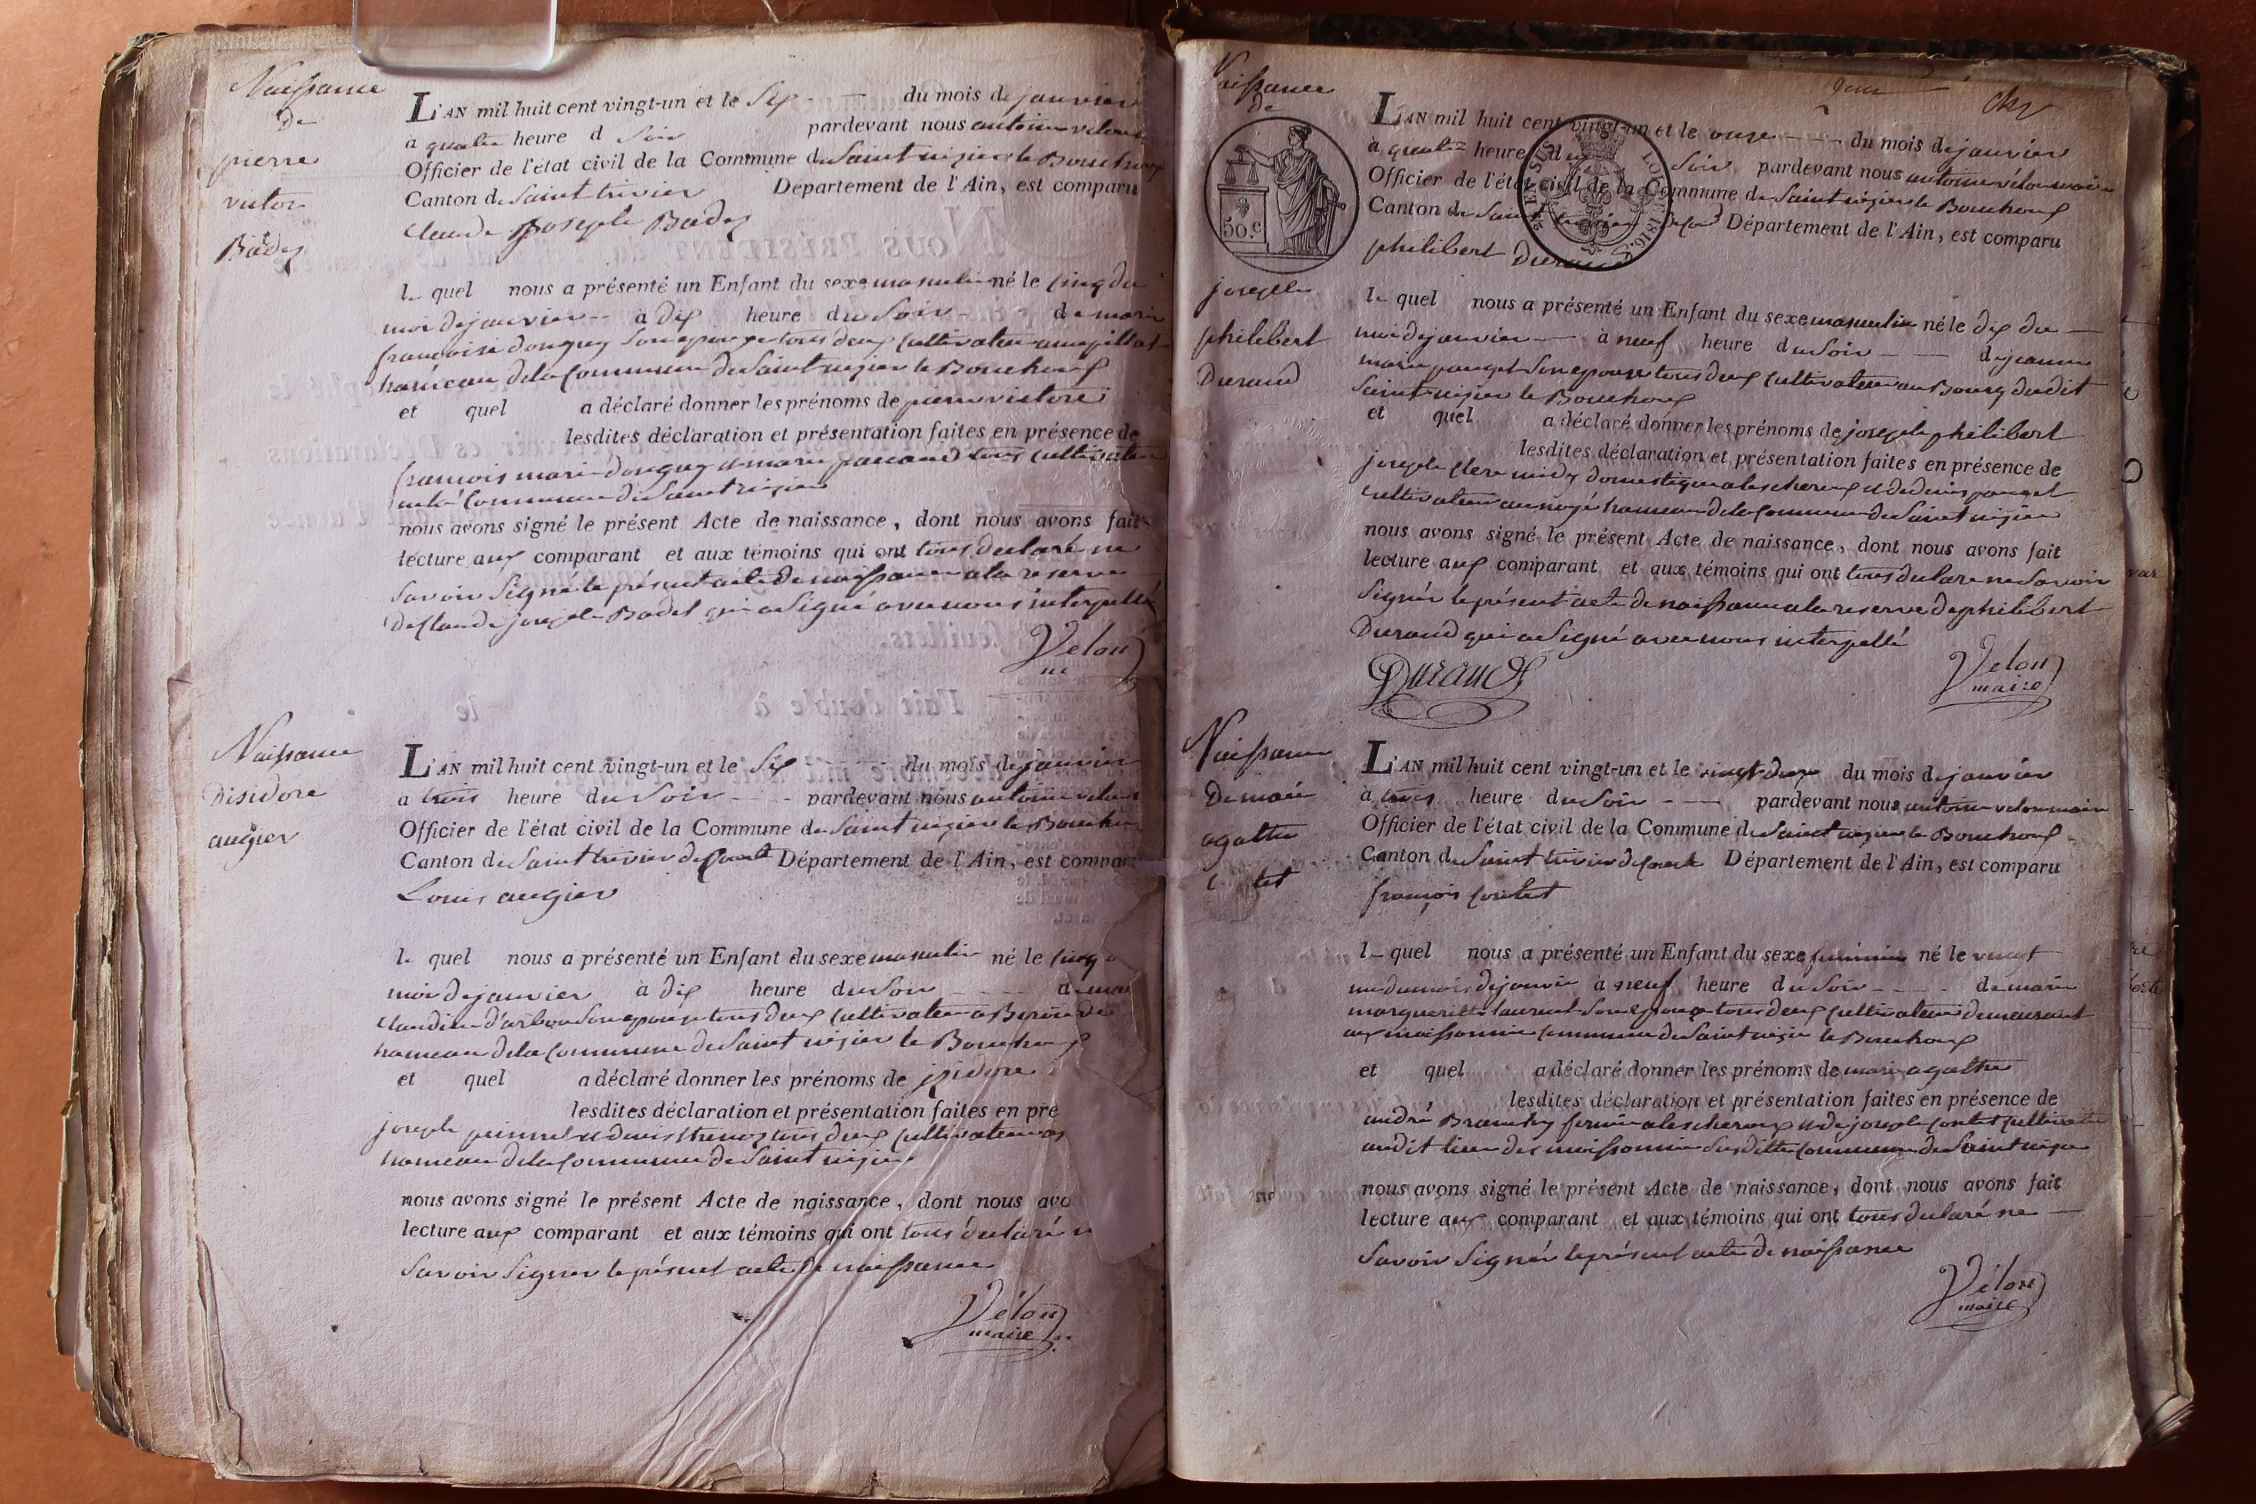 Naissance
de
pierre
victor
Badez
L'AN mil huit cent vingt-un et le Six du mois de janvier
a quatre heure d Soir pardevant nous antoine velon
Officier de l'état civil de la Commune de Saint nizier le Bouchoux
Canton de Saint trivier Département de l'Ain, est comparu
Claude joseph Badez
le quel nous a présenté un Enfant du sexe masculin né le cinq du
moi de janvier à dix heure du Soir de marie
françoise donguy Son epouse tous deux cultivateur
hameau de la Commune de Saint nizier le Bouchoux
et quel a déclaré donner les prénoms de pierre victore
lesdites déclaration et présentation faites en présence de
francois marie donguy et marie tous cultivateur
Commune de Saint nizier
nous avons signé le présent Acte de naissance, dont nous avons fait
lecture aux comparant et aux témoins qui ont tous declaré ne
Savoir Signé le présent acte de naissance a la reserve
de Claude joseph Badet qui a Signé avec nous interpellé
Velon
Naissance
Disidore
augier
L'AN mil huit cent vingt-un et le Six du mois de janvier
a trois heure du Soir pardevant nous antoine velon
Officier de l'état civil de la Commune de Saint nizier le Bouchoux
Canton de Saint trivier de Court Département de l'Ain, est comparu
Louis augier
le quel nous a présenté un Enfant du sexe masculin né le cinq
moi de janvier à dix heure du Soir de
Claudine Son epouse tous deux cultivateur a
hameau de la Commune de Saint nizier le Bouchoux
et quel a déclaré donner les prénoms de jzidore
lesdites déclaration et présentation faites en pré
joseph et denis tous deux cultivateur
hameau de la Commune de Saint nizier
nous avons signé le présent Acte de naissance, dont nous avo
lecture aux comparant et aux témoins qui ont tous declaré
Savoir Signer le présent acte de naissance
Vélon
maire
Naissance
de
50.c
joseph
philibert
Durand
LOI DE 1816
L'AN mil huit cent vingt-un et le onze du mois de janvier
à quatre heure du Soir pardevant nous antoine vélon maire
Officier de l'état civil de la Commune de Saint nizier le Bouchoux
Canton de Saint Département de l'Ain, est comparu
philibert Durand
le quel nous a présenté un Enfant du sexe masculin né le dix du
moi de janvier à neuf heure du Soir de jeanne
marie pauget Son epouse tous deux cultivateur au Bourg du dit
Saint nizier le Bouchoux
et quel a déclaré donner les prénoms de joseph philibert
lesdites déclaration et présentation faites en présence de
joseph Clere domestique et de denis pauget
cultivateur hameau de la Commune de Saint nizier
nous avons signé le présent Acte de naissance, dont nous avons fait
lecture aux comparant et aux témoins qui ont tous declare ne Savoir
Signér le présent acte de naissance a la reserve de philibert
Durand qui a Signé avec nous interpellé
Durand
Velon
maire
Naissance
De marie
agathe
L'AN mil huit cent vingt-un et le vingt deux du mois de janvier
à trois heure du Soir pardevant nous antoine velon maire
Officier de l'état civil de la Commune de Saint nizier le Bouchoux
Canton de Saint trivier de Court Département de l'Ain, est comparu
françois Contet
le quel nous a présenté un Enfant du sexe feminin né le vingt
un du mois de janvier à neuf heure du Soir de marie
marguerite laurent Son epouse tous deux cultivateur demeurant
aux Commune de Saint nizier le Bouchoux
et quel a déclaré donner les prénoms de marie agathe
lesdites déclaration et présentation faites en présence de
andré et de joseph Contet cultivateur
au dit lieu des Susditte Commune de Saint nizier
nous avons signé le présent Acte de naissance, dont nous avons fait
lecture aux comparant et aux témoins qui ont tous declaré ne
Savoir Signér le présent acte de naissance
Vélon
maire